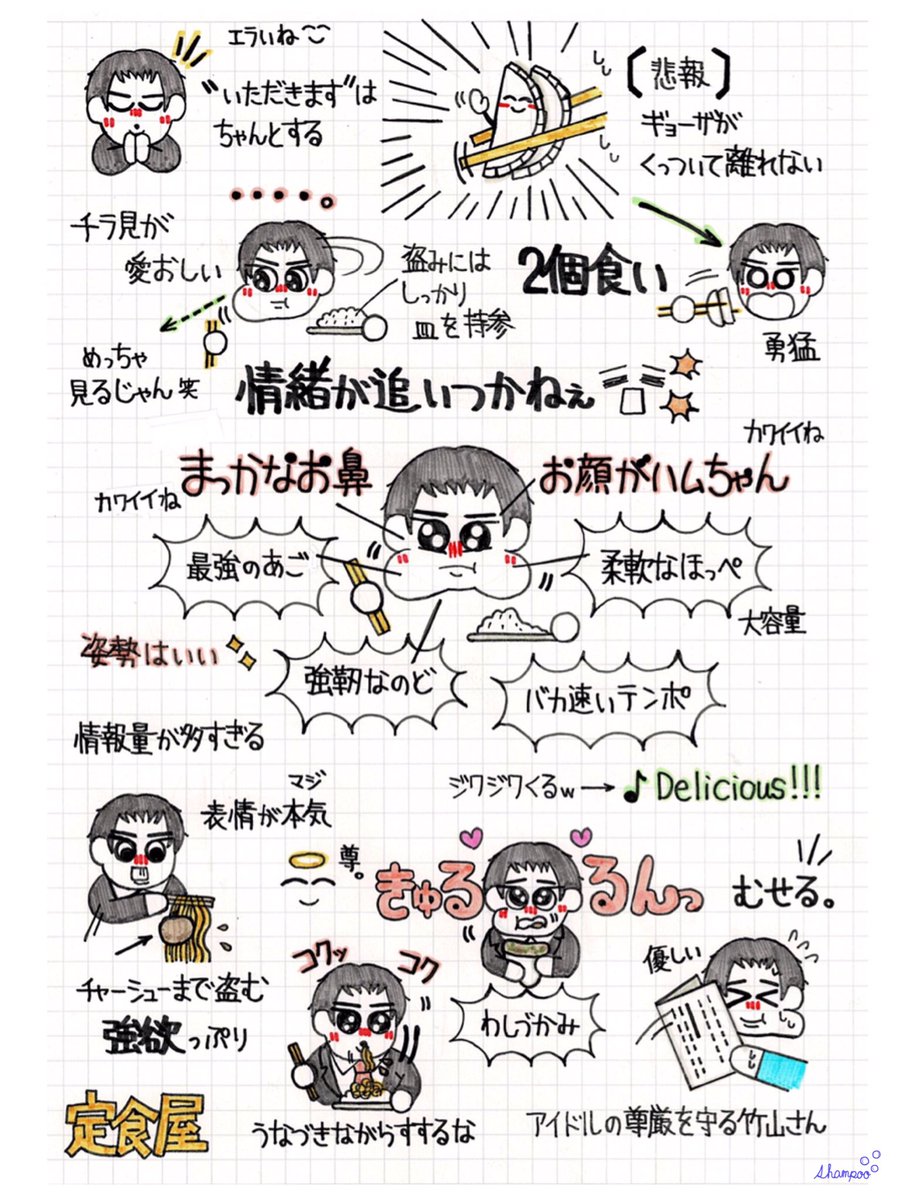 エラいね
"いただきます"は
ちゃんとする
【悲報】
ギョーザが
くっついて離れない
チラ見が
愛おしい
盗みには
しっかり
皿を持参
2個食い
勇猛
めっちゃ
見るじゃん 笑
情緒が追いつかねぇ
カワイイね
まっかなお鼻
お顔がハムちゃん
カワイイね
最強のあご
柔軟なほっぺ
大容量
姿勢はいい
強靭なのど
バカ速いテンポ
情報量が多すぎる
ジワジワくるw→♪Delicious!!!
マジ
表情が本気
尊。
きゅるるんっ
むせる。
チャーシューまで盗む
強欲っぷり
コクッ
コク
わしづかみ
優しい
定食屋
うなづきながらすするな
アイドルの尊厳を守る竹山さん
Shampoo